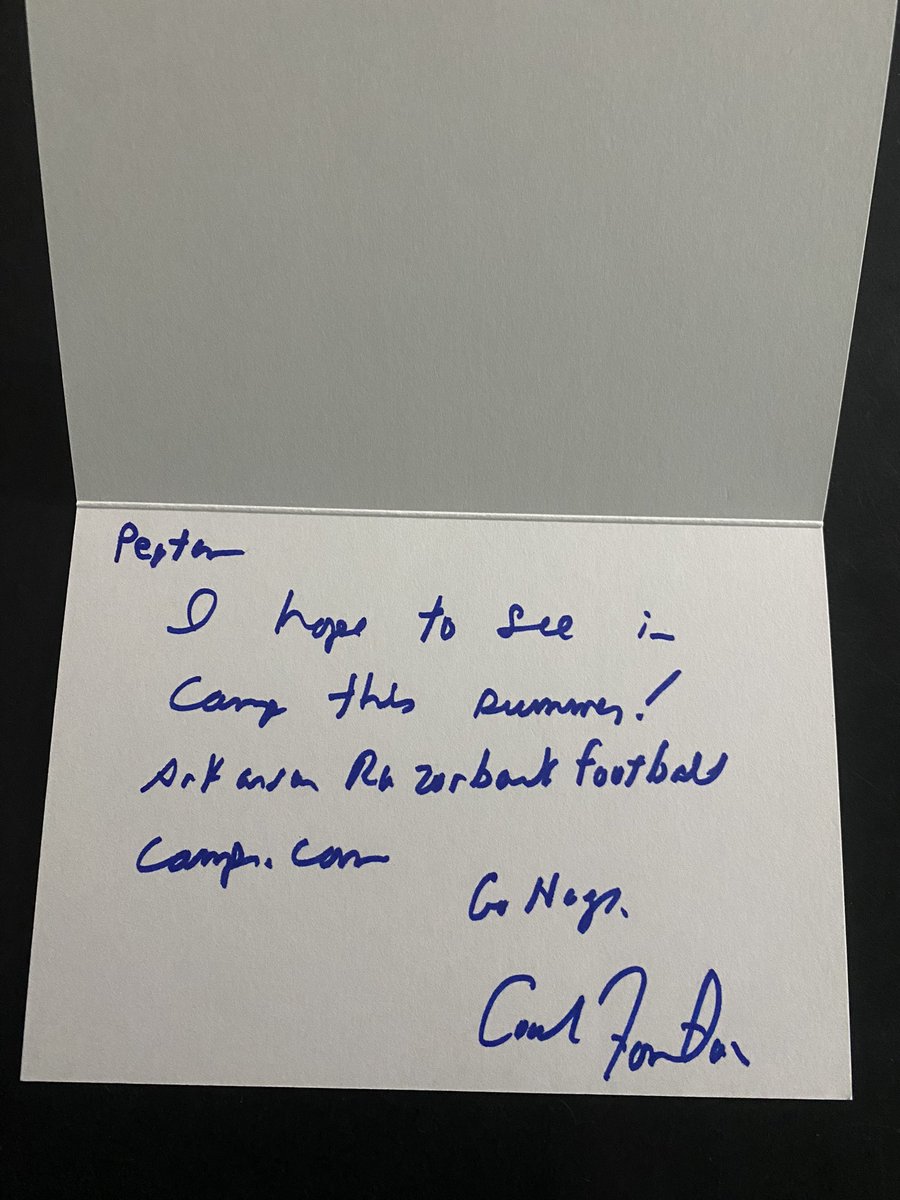 Peyton
I hope to see in
Camp this summer!
Arkansas Razorback football
camps.com
Go Hogs.
Coach Fountain